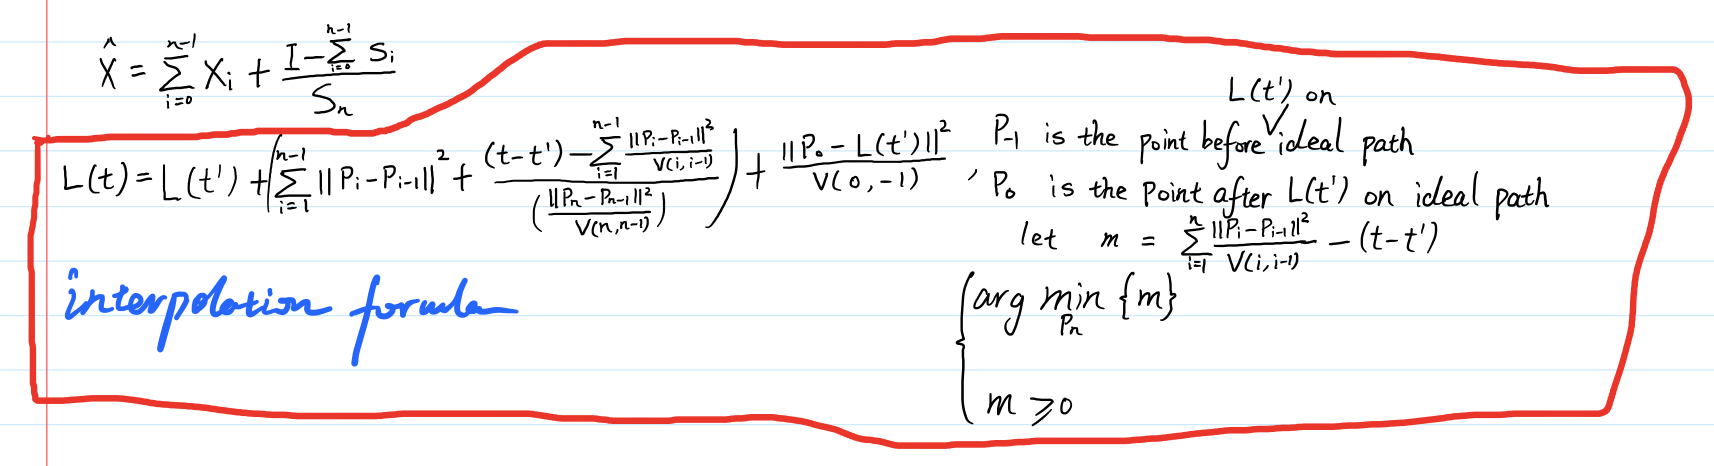 X̂ = \sum_{i=0}^{n-1} X_i + \frac{I - \sum_{i=0}^{n-1} S_i}{S_n}
L(t) = L(t') + \left( \sum_{i=1}^{n-1} ||P_i - P_{i-1}||^2 + \frac{(t-t') - \sum_{i=1}^{n-1} \frac{||P_i - P_{i-1}||^2}{V(i,i-1)}}{\left( \frac{||P_n - P_{n-1}||^2}{V(n,n-1)} \right)} \right) + \frac{||P_0 - L(t')||^2}{V(0,-1)} ,
P_{-1} is the point before L(t') on ideal path
P_0 is the point after L(t') on ideal path
let m = \sum_{i=1}^{n} \frac{||P_i - P_{i-1}||^2}{V(i,i-1)} - (t-t')
{ arg min_{P_n} {m}
m ⩾ 0
interpolation formula